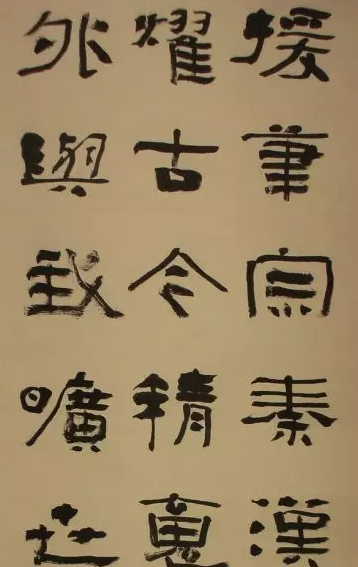 援筆宗秦漢
燿古今精
外與我曠世